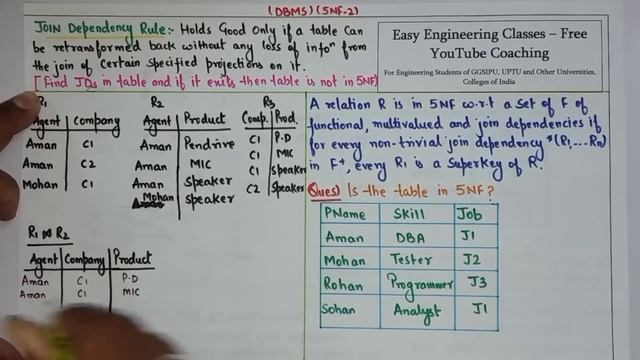 (DBMS) (5NF-2)
JOIN DEPENDENCY RULE:- Holds Good only if a table Can
be retransformed back without any loss of infoⁿ from
the join of Certain specified projections on it.
[Find JDs in table and if it exits then table is not in 5NF]
Easy Engineering Classes – Free
YouTube Coaching
For Engineering Students of GGSIPU, UPTU and Other Universities,
Colleges of India
R1
Agent Company
Aman C1
Aman C2
Mohan C1
R2
Agent Product
Aman Pendrive
Aman MIC
Aman Speaker
Mohan Speaker
R3
Comp. Prod.
C1 P.D
C1 MIC
C1 Speaker
C2 Speaker
A relation R is in 5NF w.r.t a Set of F of
functional, multivalued and join dependencies if
for every non-trivial join dependency *(R1,...Rn)
in F⁺, every Ri is a Superkey of R.
Ques) Is the table in 5NF?
PName Skill Job
Aman DBA J1
Mohan Tester J2
Rohan Programmer J3
Sohan Analyst J1
R1 ⋈ R2
Agent Company Product
Aman C1 P.D
Aman C1 MIC